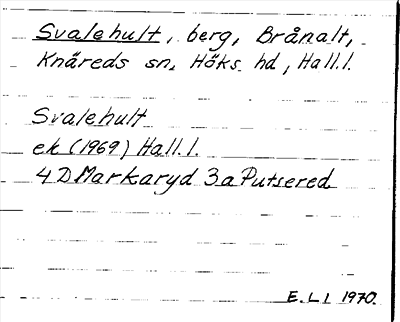 Svalehult, berg, Brånalt,
Knäreds sn, Höks hd, Hall.l.
Svalehult
ek (1969) Hall.l.
4 D Markaryd 3a Putsered
E.L.l 1970.